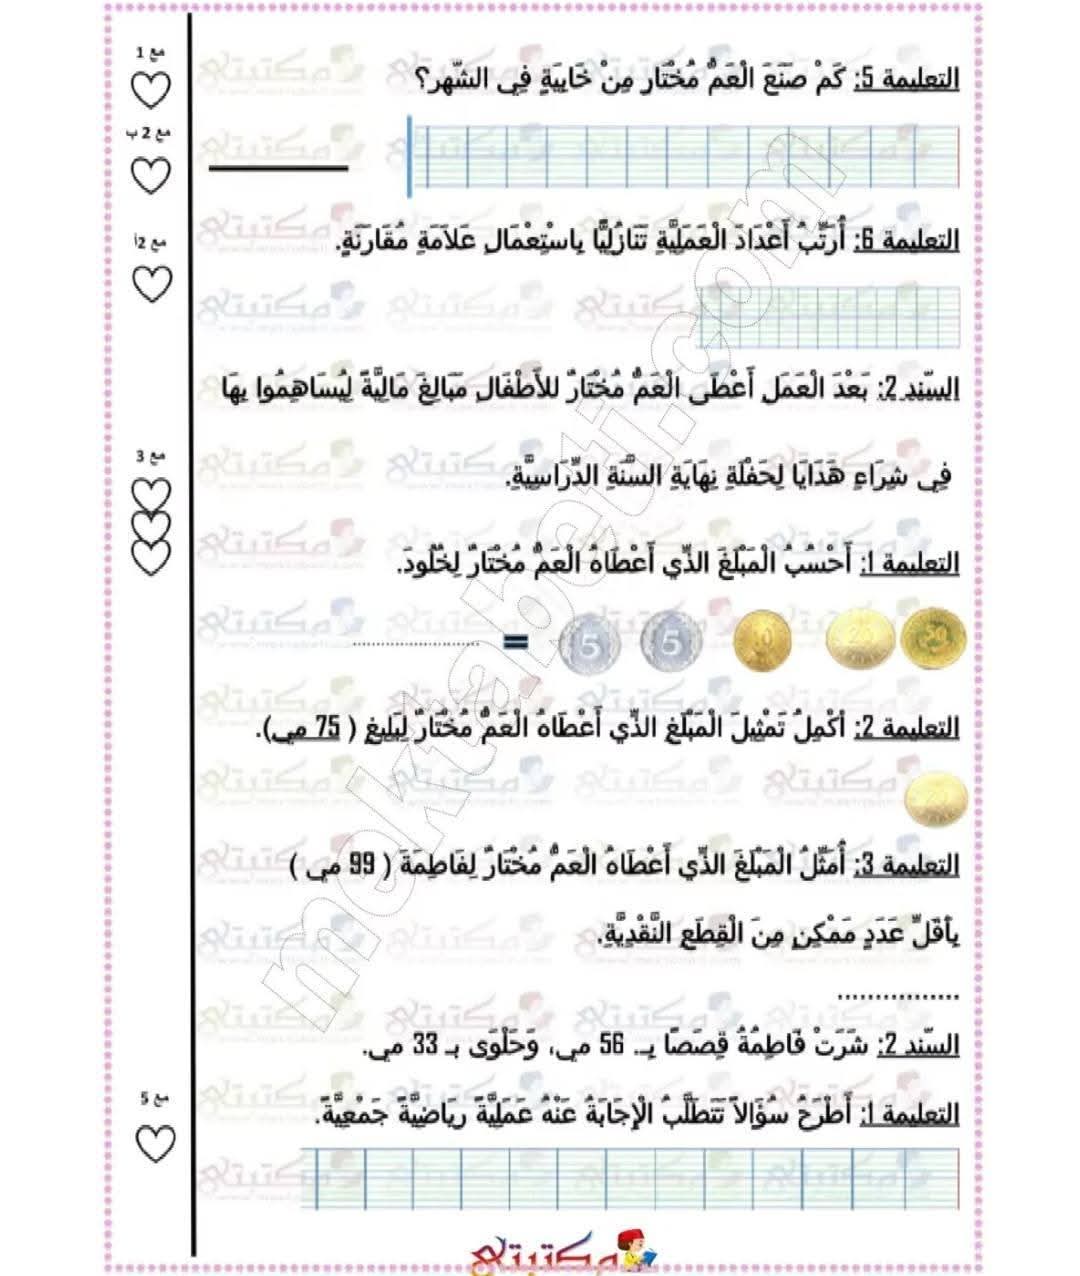 مع 1
التعليمة 5: كَمْ صَنَعَ الْعَمُّ مُخْتَار مِنْ خَابِيَةٍ فِي الشّهر؟
مع 2 ب
مع 2أ
التعليمة 6: أُرَتِّبُ أَعْدَادَ الْعَمَلِيَّةِ تَنَازُلِيًّا بِاسْتِعْمَالِ عَلاَمَةِ مُقَارَنَةٍ.
السّند 2: بَعْدَ الْعَمَلِ أَعْطَى الْعَمُّ مُخْتَارٌ للأَطْفَالِ مَبَالِغَ مَالِيَّةً لِيُسَاهِمُوا بِهَا
مع 3
فِي شِرَاءِ هَدَايَا لِحَفْلَةِ نِهَايَةِ السَّنَةِ الدِّرَاسِيَّةِ.
التعليمة 1: أَحْسُبُ الْمَبْلَغَ الذِّي أَعْطَاهُ الْعَمُّ مُخْتَارٌ لِخُلُودَ.
5 5 = ........................
التعليمة 2: أُكْمِلُ تَمْثِيلَ الْمَبْلَغِ الذِّي أَعْطَاهُ الْعَمُّ مُخْتَارٌ لِبَلِيغٍ ( 75 مي).
التعليمة 3: أُمَثِّلُ الْمَبْلَغَ الذِّي أَعْطَاهُ الْعَمُّ مُخْتَارٌ لِفَاطِمَةَ ( 99 مي )
بِأَقَلِّ عَدَدٍ مُمْكِنٍ مِنَ الْقِطَعِ النَّقْدِيَّةِ.
................
السّند 2: شَرَتْ فَاطِمَةُ قِصَصًا بِـ 56 مي، وَحَلْوَى بـ 33 مي.
مع 5
التعليمة 1: أَطْرَحُ سُؤَالاً تَتَطَلَّبُ الْإِجَابَةُ عَنْهُ عَمَلِيَّةً رِيَاضِيَّةً جَمْعِيَّةً.
مكتبتي
mektabeti.com